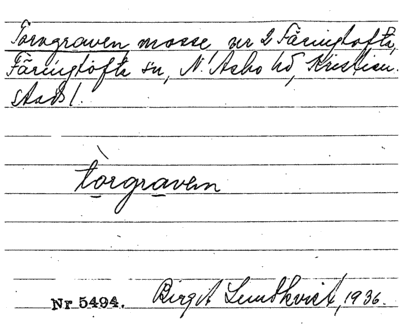 Torngraven, mosse, nr 2 Färingtofta,
Färingtofta sn, N. Åsbo hd, Kristian-
stads l.
tòrgraven
Nr 5494. Birgit Lundkvist, 1936.